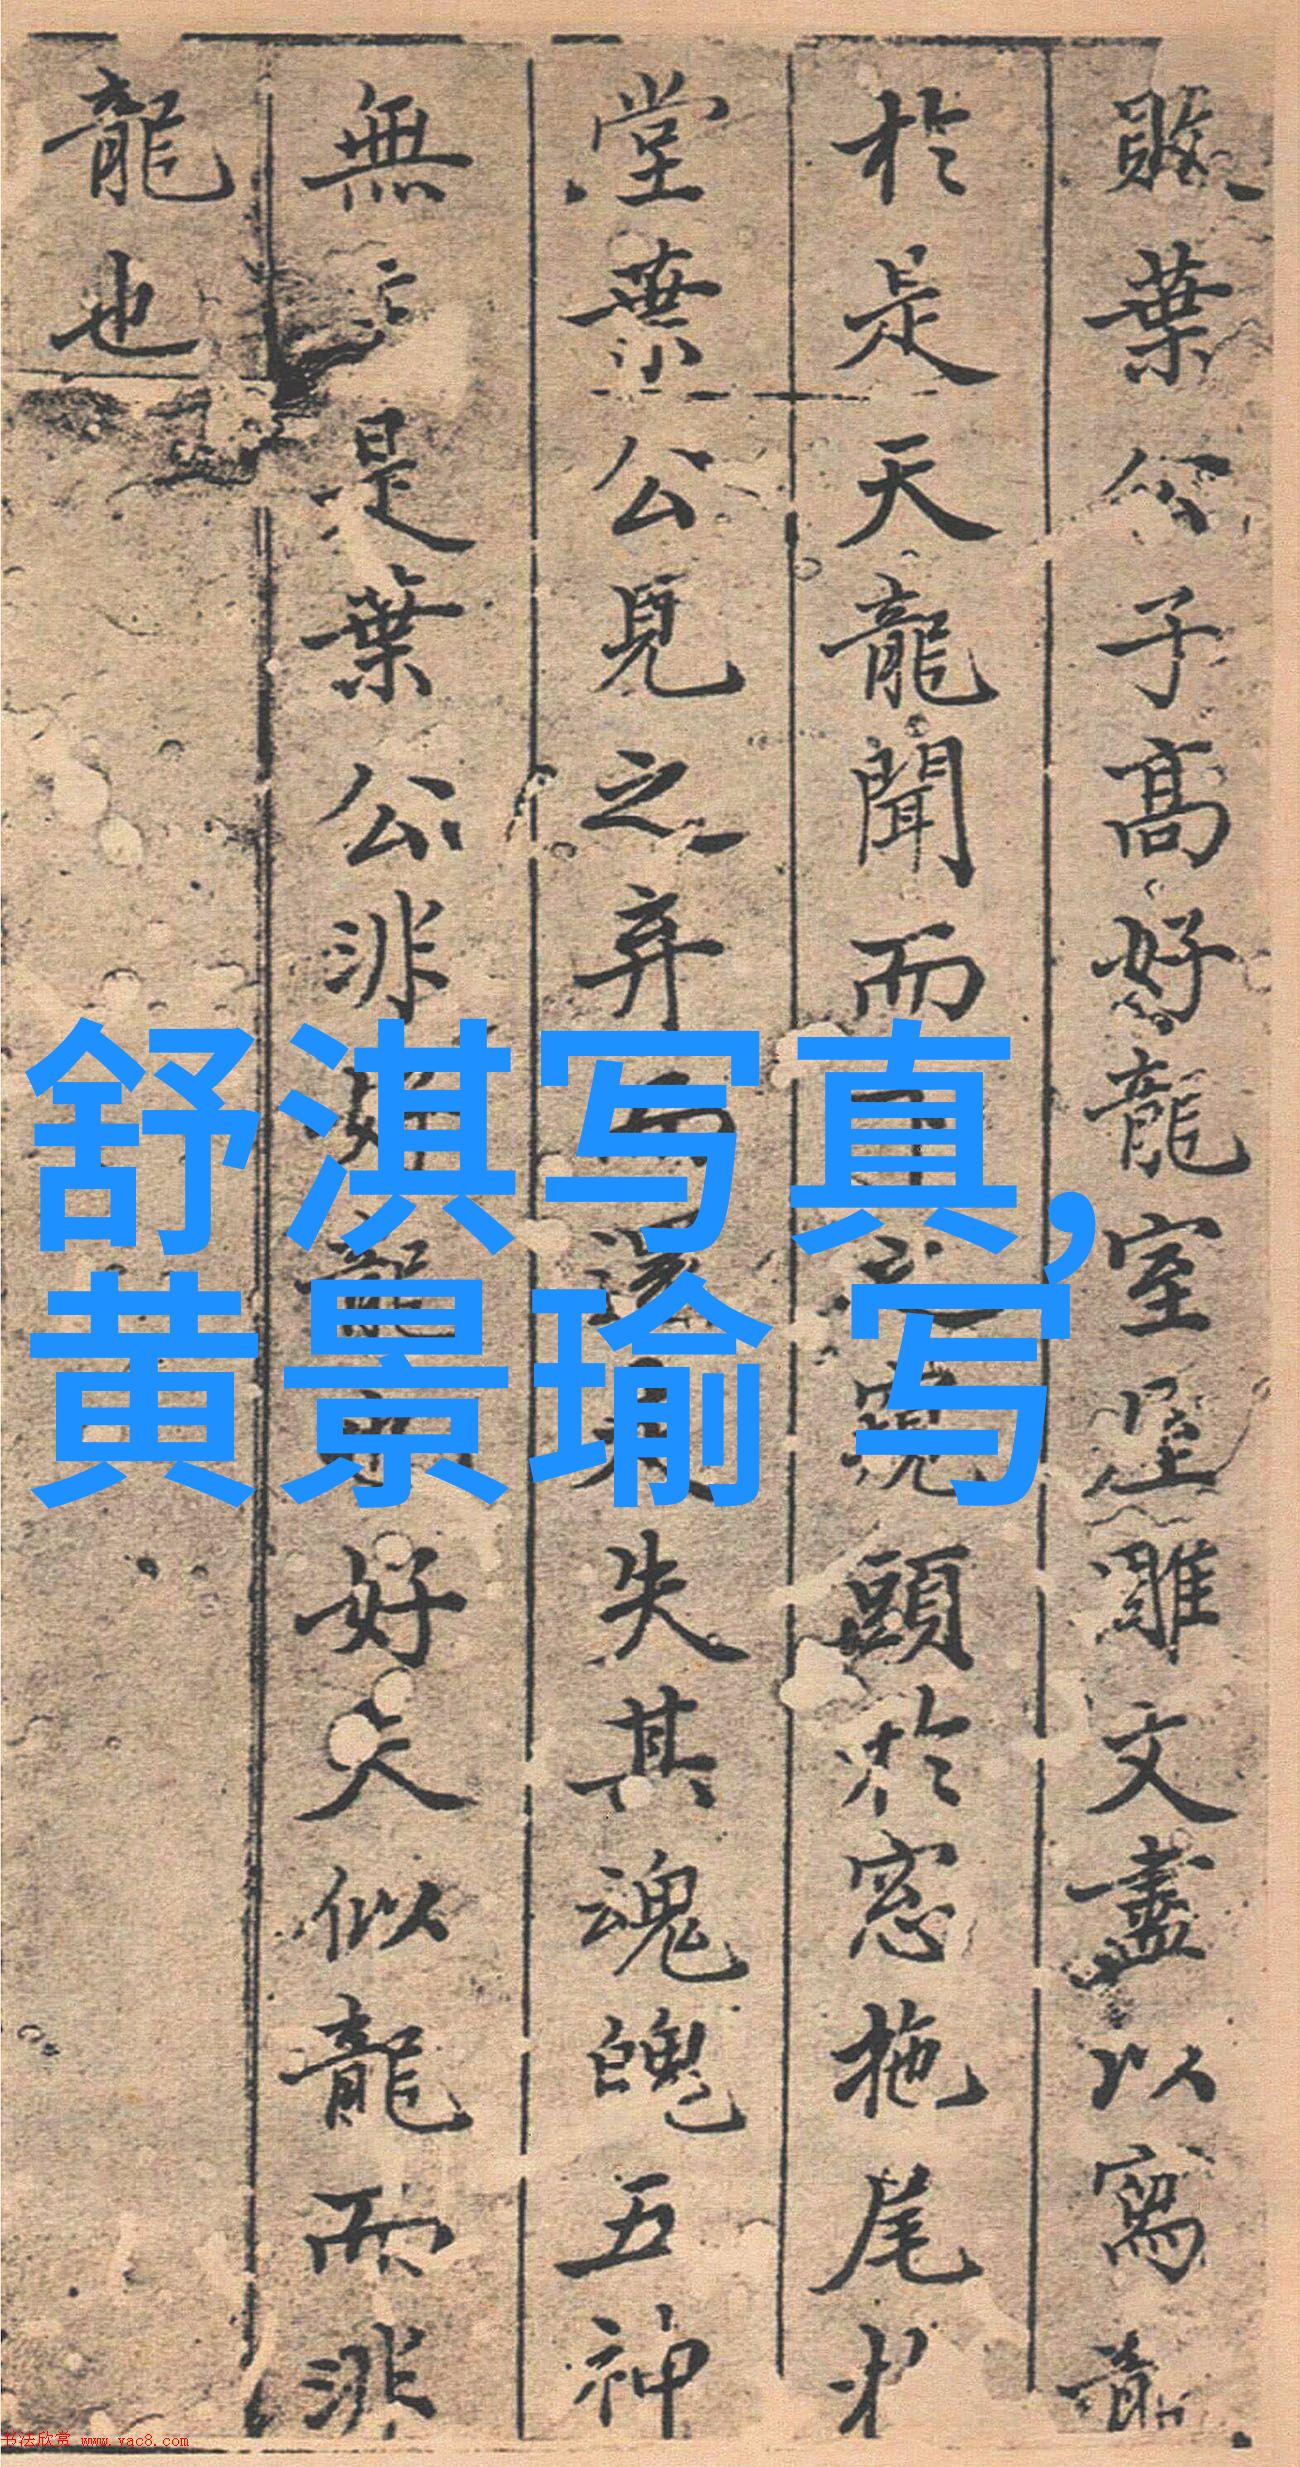 敗葉公子高好龍室屋雕文盡以寫龍
於是天龍聞而下之窺頭於窓拖尾於
堂葉公見之弃而還走失其魂魄五神
無主是葉公非好龍也好夫似龍而非
龍也
舒淇写真,
黄景瑜 写
书法欣赏 www.yac8.com